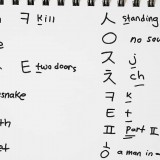 ㅋ kill
E two doors
snake
th
et
ㅅ standing
ㅇ no sou
ㅈ j
ㅊ ch
ㅋ k
E t
ㅍ part II
ㅎ a man in a